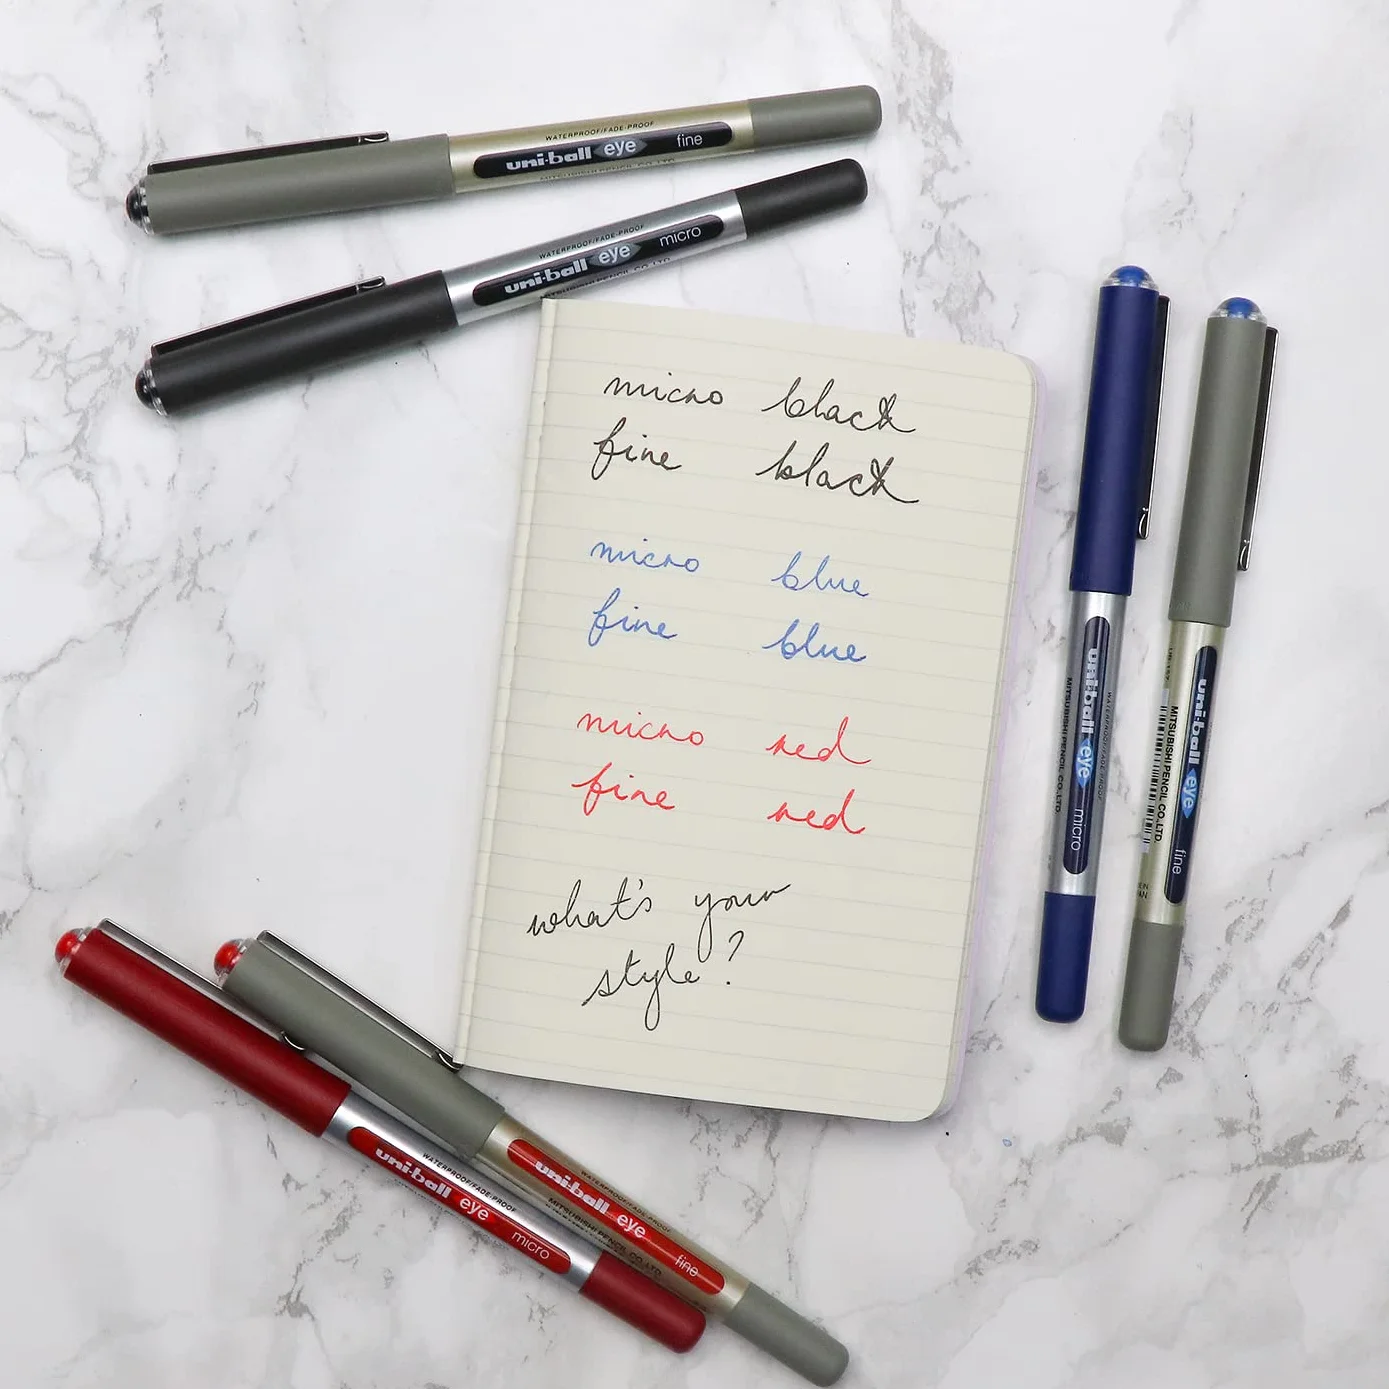 WATERPROOF/FADE-PROOF
uni-ball eye fine
WATERPROOF/FADE-PROOF
uni-ball eye micro
micro black
fine black
micro blue
fine blue
micro red
fine red
what's your
style?
WATERPROOF/FADE-PROOF
uni-ball eye micro
MITSUBISHI PENCIL CO.,LTD.
UB-157
uni-ball eye fine
MITSUBISHI PENCIL CO.,LTD.
WATERPROOF/FADE-PROOF
uni-ball eye micro
WATERPROOF/FADE-PROOF
uni-ball eye fine
MITSUBISHI PENCIL CO.,LTD.